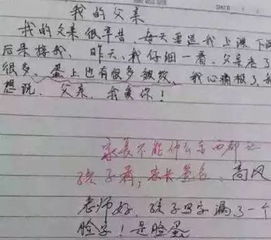 我的父亲
我的父亲很辛苦,每天要送我上课下
后来接我,昨天,我仔细一看,父亲老了
很多,蛋上也有很多皱纹,我心痛极了,我
想说,父亲,我爱你!
家长不能什么东西都让
孩子看,家长签名:高风
老师好,孩子写字漏了一个
脸字!是脸蛋